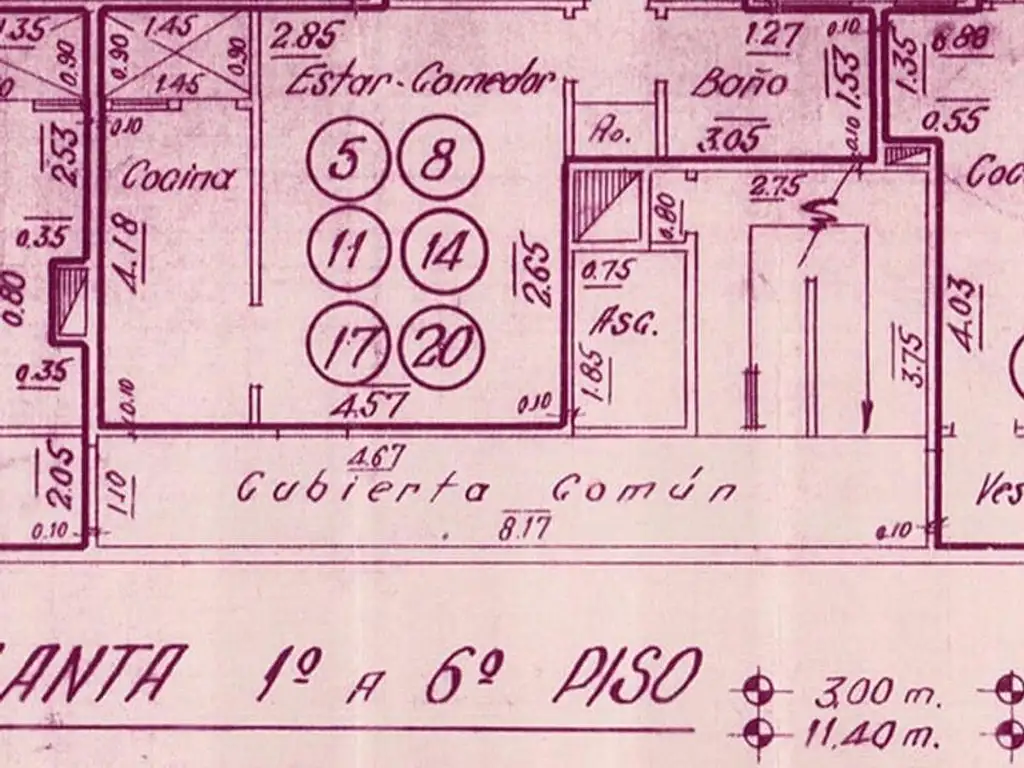 1.35
0.90
0.90
1.45
0.90
1.45
2.85
Estar-Comedor
1.27
0.10
1.53
Baño
1.35
0.88
0.55
0.10
Ro.
3.05
0.10
2.53
Cocina
5
8
2.75
Coc
0.35
4.18
11
14
2.65
0.80
0.80
0.75
Asc.
4.03
17
20
0.35
1.85
3.75
0.10
4.57
0.10
4.67
2.05
1.10
Cubierta Común
Ves
0.10
8.17
0.10
LANTA 1º A 6º PISO
3.00 m.
11.40 m.